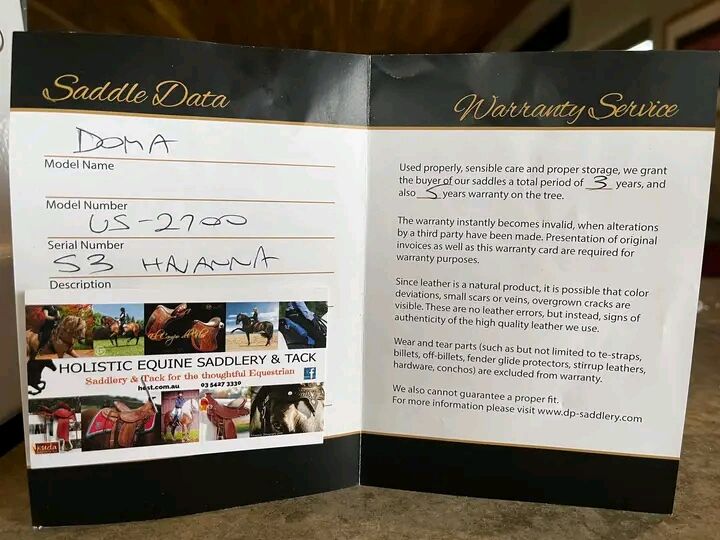 Saddle Data
DOMA
Model Name
Model Number
US-2700
Serial Number
S3 HAVANNA
Description
HOLISTIC EQUINE SADDLERY & TACK
Saddlery & Tack for the thoughtful Equestrian
hest.com.au 03 5427 3320
Warranty Service
Used properly, sensible care and proper storage, we grant
the buyer of our saddles a total period of 3 years, and
also 5 years warranty on the tree.
The warranty instantly becomes invalid, when alterations
by a third party have been made. Presentation of original
invoices as well as this warranty card are required for
warranty purposes.
Since leather is a natural product, it is possible that color
deviations, small scars or veins, overgrown cracks are
visible. These are no leather errors, but instead, signs of
authenticity of the high quality leather we use.
Wear and tear parts (such as but not limited to te-straps,
billets, off-billets, fender glide protectors, stirrup leathers,
hardware, conchos) are excluded from warranty.
We also cannot guarantee a proper fit.
For more information please visit www.dp-saddlery.com